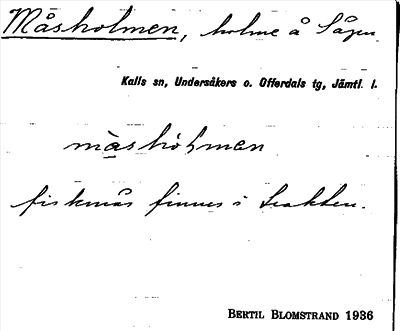 Måsholmen, holme å Sågen.
Kalls sn, Undersåkers o. Offerdals tg, Jämtl. l.
màshòlmen
fiskmås finnes i trakten.
BERTIL BLOMSTRAND 1936